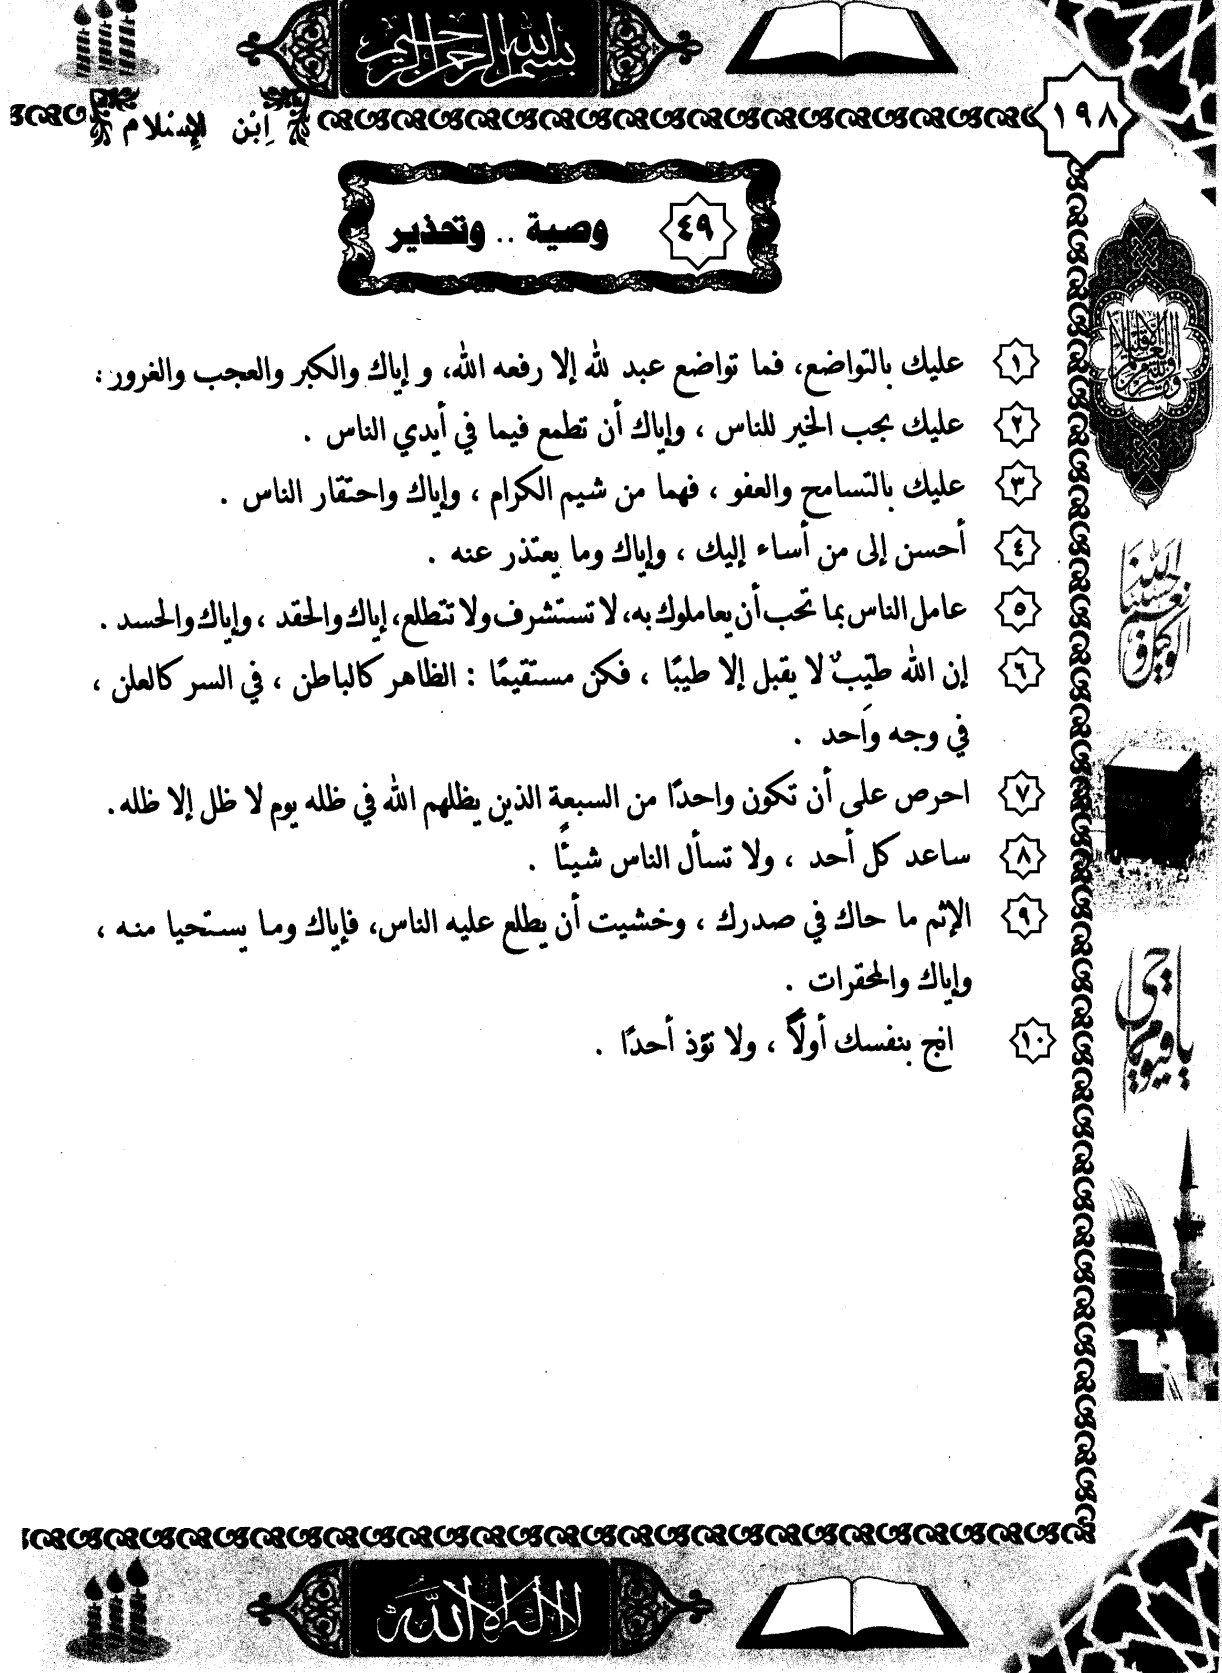 بسم الله الرحمن الرحيم
١٩٨
ابْن الإِسْلام
٤٩ وصية .. وتحذير
١ عليك بالتواضع، فما تواضع عبد لله إلا رفعه الله، و إياك والكبر والعجب والغرور :
٢ عليك بحب الخير للناس ، وإياك أن تطمع فيما في أيدي الناس .
٣ عليك بالتسامح والعفو ، فهما من شيم الكرام ، وإياك واحتقار الناس .
٤ أحسن إلى من أساء إليك ، وإياك وما يعتذر عنه .
٥ عامل الناس بما تحب أن يعاملوك به، لا تستشرف ولا تتطلع، إياك والحقد ، وإياك والحسد .
٦ إن الله طيّبٌ لا يقبل إلا طيبًا ، فكن مستقيمًا : الظاهر كالباطن ، في السر كالعلن ،
في وجه وَاحد .
٧ احرص على أن تكون واحدًا من السبعة الذين يظلهم الله في ظله يوم لا ظل إلا ظله.
٨ ساعد كل أحد ، ولا تسأل الناس شيئًا .
٩ الإثم ما حاك في صدرك ، وخشيت أن يطلع عليه الناس، فإياك وما يستحيا منه ،
وإياك والمحقرات .
١٠ انج بنفسك أولاً ، ولا تؤذ أحدًا .
حسبنا الله ونعم الوكيل
يا حي يا قيوم
لا إله إلا الله